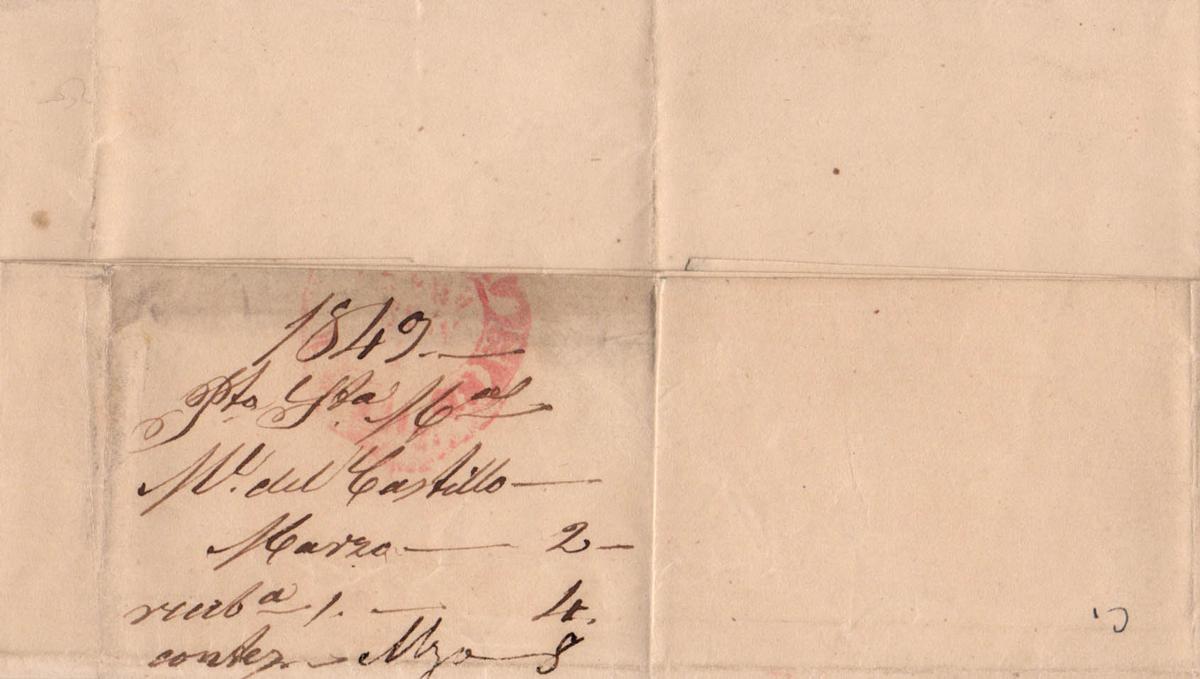 1849.—
Pto. Sta. Ma
M.l del Castillo—
Marzo— 2—
recib.a — 4.
contez. — Mzo — 8